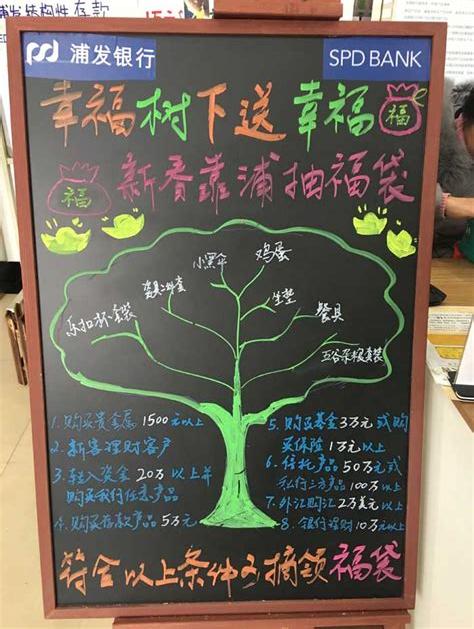 浦发结构性存款
浦发银行
SPD BANK
幸福树下送幸福
福
新春靠浦抽福袋
福
小黑伞
鸡蛋
餐具二件套
坐垫
乐扣杯套装
餐具
五谷杂粮套装
1. 购买贵金属1500元以上
2. 新客理财客户
3. 转入资金20万以上并
购买我行任意产品
4. 购买存款产品5万元
5. 购买基金3万元或购
买保险1万元以上
6. 信托产品50万元或
私行三方产品100万以上
7. 外汇购汇2万美元以上
8. 银行理财10万元以上
符合以上条件可摘领福袋